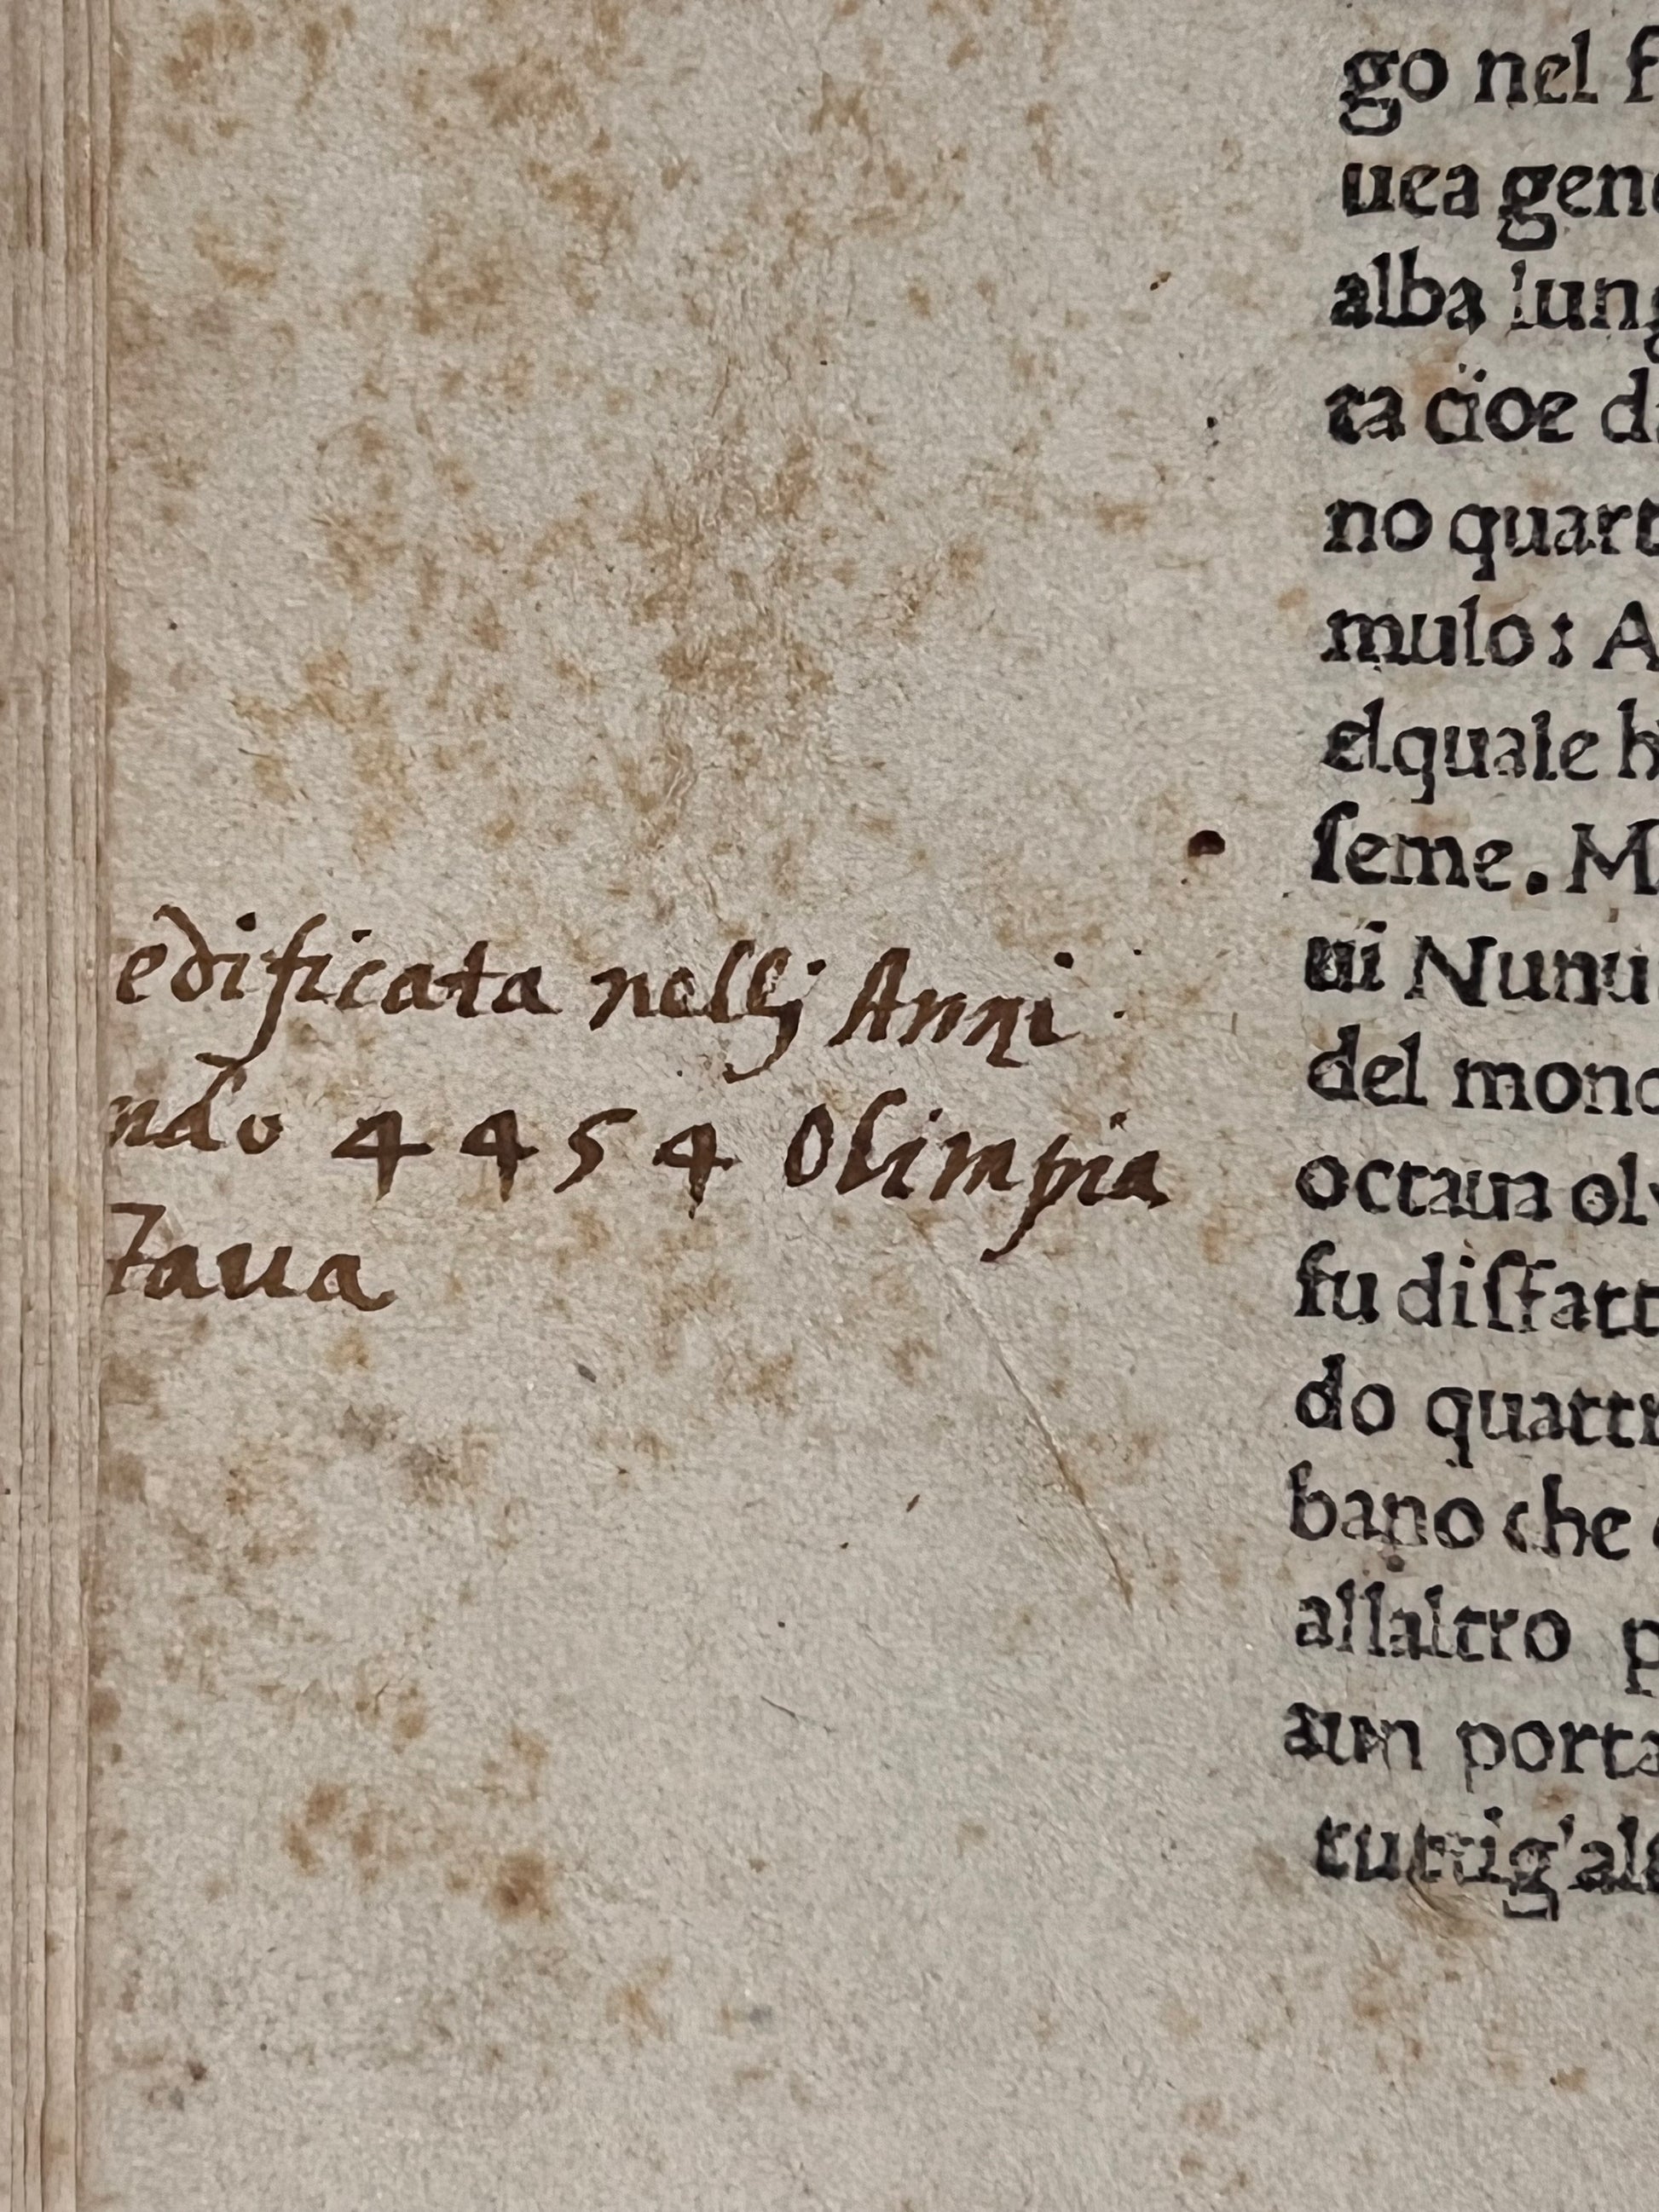 edificata nellj Anni
ndo 4454 Olimpia
taua
go nel f
uea gene
alba lung
ta cioe d
no quart
mulo: A
elquale h
seme. M
ui Numi
del mond
octaua oly
fu disfatt
do quattr
bano che
allaltro p
aun porta
tuttig'alt